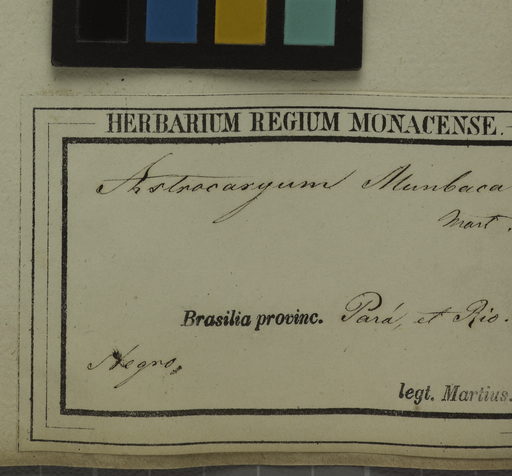 HERBARIUM REGIUM MONACENSE.
Astrocaryum Munbaca
Mart.
Brasilia provinc. Pará, et Rio.
Negro,
legt. Martius.